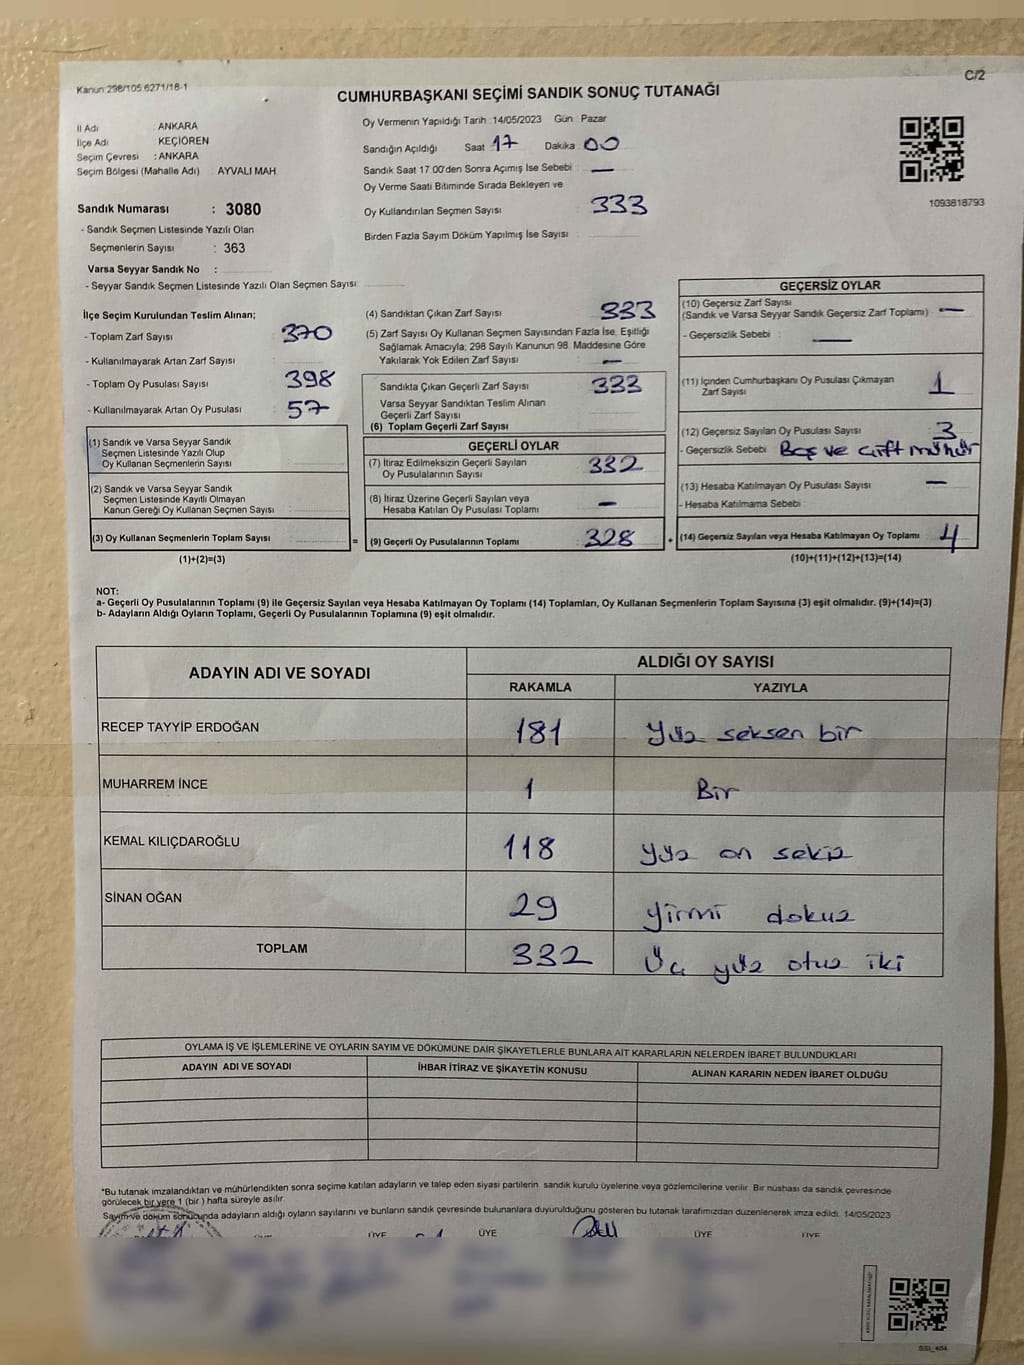 Kanun:298/105.6271/18-1
C/2
CUMHURBAŞKANI SEÇİMİ SANDIK SONUÇ TUTANAĞI
İl Adı ANKARA
İlçe Adı KEÇİÖREN
Seçim Çevresi : ANKARA
Seçim Bölgesi (Mahalle Adı) : AYVALI MAH
Sandık Numarası : 3080
- Sandık Seçmen Listesinde Yazılı Olan
Seçmenlerin Sayısı : 363
Varsa Seyyar Sandık No :
- Seyyar Sandık Seçmen Listesinde Yazılı Olan Seçmen Sayısı:
Oy Vermenin Yapıldığı Tarih :14/05/2023 Gün : Pazar
Sandığın Açıldığı Saat 17 Dakika 00
Sandık Saat 17:00'den Sonra Açımış İse Sebebi : —
Oy Verme Saati Bitiminde Sırada Bekleyen ve
Oy Kullandırılan Seçmen Sayısı : 333
Birden Fazla Sayım Döküm Yapılmış İse Sayısı :
1093818793
İlçe Seçim Kurulundan Teslim Alınan;
- Toplam Zarf Sayısı : 370
- Kullanılmayarak Artan Zarf Sayısı :
- Toplam Oy Pusulası Sayısı : 398
- Kullanılmayarak Artan Oy Pusulası : 57
(1) Sandık ve Varsa Seyyar Sandık
Seçmen Listesinde Yazılı Olup
Oy Kullanan Seçmenlerin Sayısı :
(2) Sandık ve Varsa Seyyar Sandık
Seçmen Listesinde Kayıtlı Olmayan
Kanun Gereği Oy Kullanan Seçmen Sayısı :
(3) Oy Kullanan Seçmenlerin Toplam Sayısı :
(1)+(2)=(3)
(4) Sandıktan Çıkan Zarf Sayısı : 333
(5) Zarf Sayısı Oy Kullanan Seçmen Sayısından Fazla İse, Eşitliği
Sağlamak Amacıyla, 298 Sayılı Kanunun 98. Maddesine Göre
Yakılarak Yok Edilen Zarf Sayısı : —
Sandıkta Çıkan Geçerli Zarf Sayısı : 333
Varsa Seyyar Sandıktan Teslim Alınan
Geçerli Zarf Sayısı
(6) Toplam Geçerli Zarf Sayısı :
GEÇERLİ OYLAR
(7) İtiraz Edilmeksizin Geçerli Sayılan
Oy Pusulalarının Sayısı : 332
(8) İtiraz Üzerine Geçerli Sayılan veya
Hesaba Katılan Oy Pusulası Toplamı : —
= (9) Geçerli Oy Pusulalarının Toplamı : 328 +
GEÇERSİZ OYLAR
(10) Geçersiz Zarf Sayısı
(Sandık ve Varsa Seyyar Sandık Geçersiz Zarf Toplamı) : —
- Geçersizlik Sebebi : —
(11) İçinden Cumhurbaşkanı Oy Pusulası Çıkmayan
Zarf Sayısı : 1
(12) Geçersiz Sayılan Oy Pusulası Sayısı : 3
- Geçersizlik Sebebi : Boş ve çift mühür
(13) Hesaba Katılmayan Oy Pusulası Sayısı : —
- Hesaba Katılmama Sebebi :
(14) Geçersiz Sayılan veya Hesaba Katılmayan Oy Toplamı : 4
(10)+(11)+(12)+(13)=(14)
NOT:
a- Geçerli Oy Pusulalarının Toplamı (9) ile Geçersiz Sayılan veya Hesaba Katılmayan Oy Toplamı (14) Toplamları, Oy Kullanan Seçmenlerin Toplam Sayısına (3) eşit olmalıdır. (9)+(14)=(3)
b- Adayların Aldığı Oyların Toplamı, Geçerli Oy Pusulalarının Toplamına (9) eşit olmalıdır.
ADAYIN ADI VE SOYADI ALDIĞI OY SAYISI
RAKAMLA YAZIYLA
RECEP TAYYİP ERDOĞAN 181 Yüz seksen bir
MUHARREM İNCE 1 Bir
KEMAL KILIÇDAROĞLU 118 Yüz on sekiz
SİNAN OĞAN 29 Yirmi dokuz
TOPLAM 332 Üç yüz otuz iki
OYLAMA İŞ VE İŞLEMLERİNE VE OYLARIN SAYIM VE DÖKÜMÜNE DAİR ŞİKAYETLERLE BUNLARA AİT KARARLARIN NELERDEN İBARET BULUNDUKLARI
ADAYIN ADI VE SOYADI İHBAR İTİRAZ VE ŞİKAYETİN KONUSU ALINAN KARARIN NEDEN İBARET OLDUĞU
*Bu tutanak imzalandıktan ve mühürlendikten sonra seçime katılan adayların ve talep eden siyasi partilerin sandık kurulu üyelerine veya gözlemcilerine verilir. Bir nüshası da sandık çevresinde
görülecek bir yere 1 (bir ) hafta süreyle asılır.
Sayım ve döküm sonucunda adayların aldığı oyların sayılarını ve bunların sandık çevresinde bulunanlara duyurulduğunu gösteren bu tutanak tarafımızdan düzenlenerek imza edildi. 14/05/2023
ÜYE ÜYE ÜYE ÜYE ÜYE